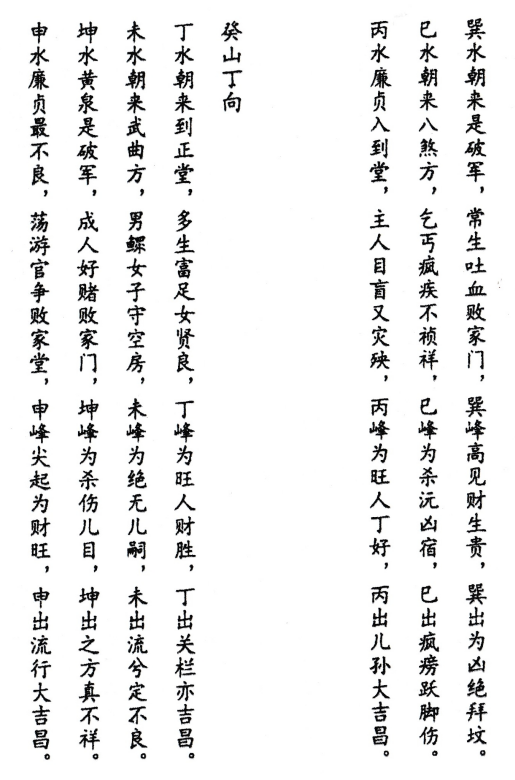 巽水朝来是破军，常生吐血败家门，巽峰高见财生贵，巽出为凶绝拜坟。
巳水朝来八煞方，乞丐疯疾不祯祥，巳峰为杀沅凶宿，巳出疯痨跃脚伤。
丙水廉贞入到堂，主人目盲又灾殃，丙峰为旺人丁好，丙出儿孙大吉昌。
癸山丁向
丁水朝来到正堂，多生富足女贤良，丁峰为旺人财胜，丁出关栏亦吉昌。
未水朝来武曲方，男鳏女子守空房，未峰为绝无儿嗣，未出流兮定不良。
坤水黄泉是破军，成人好赌败家门，坤峰为杀伤儿目，坤出之方真不祥。
申水廉贞最不良，荡游官争败家堂，申峰尖起为财旺，申出流行大吉昌。